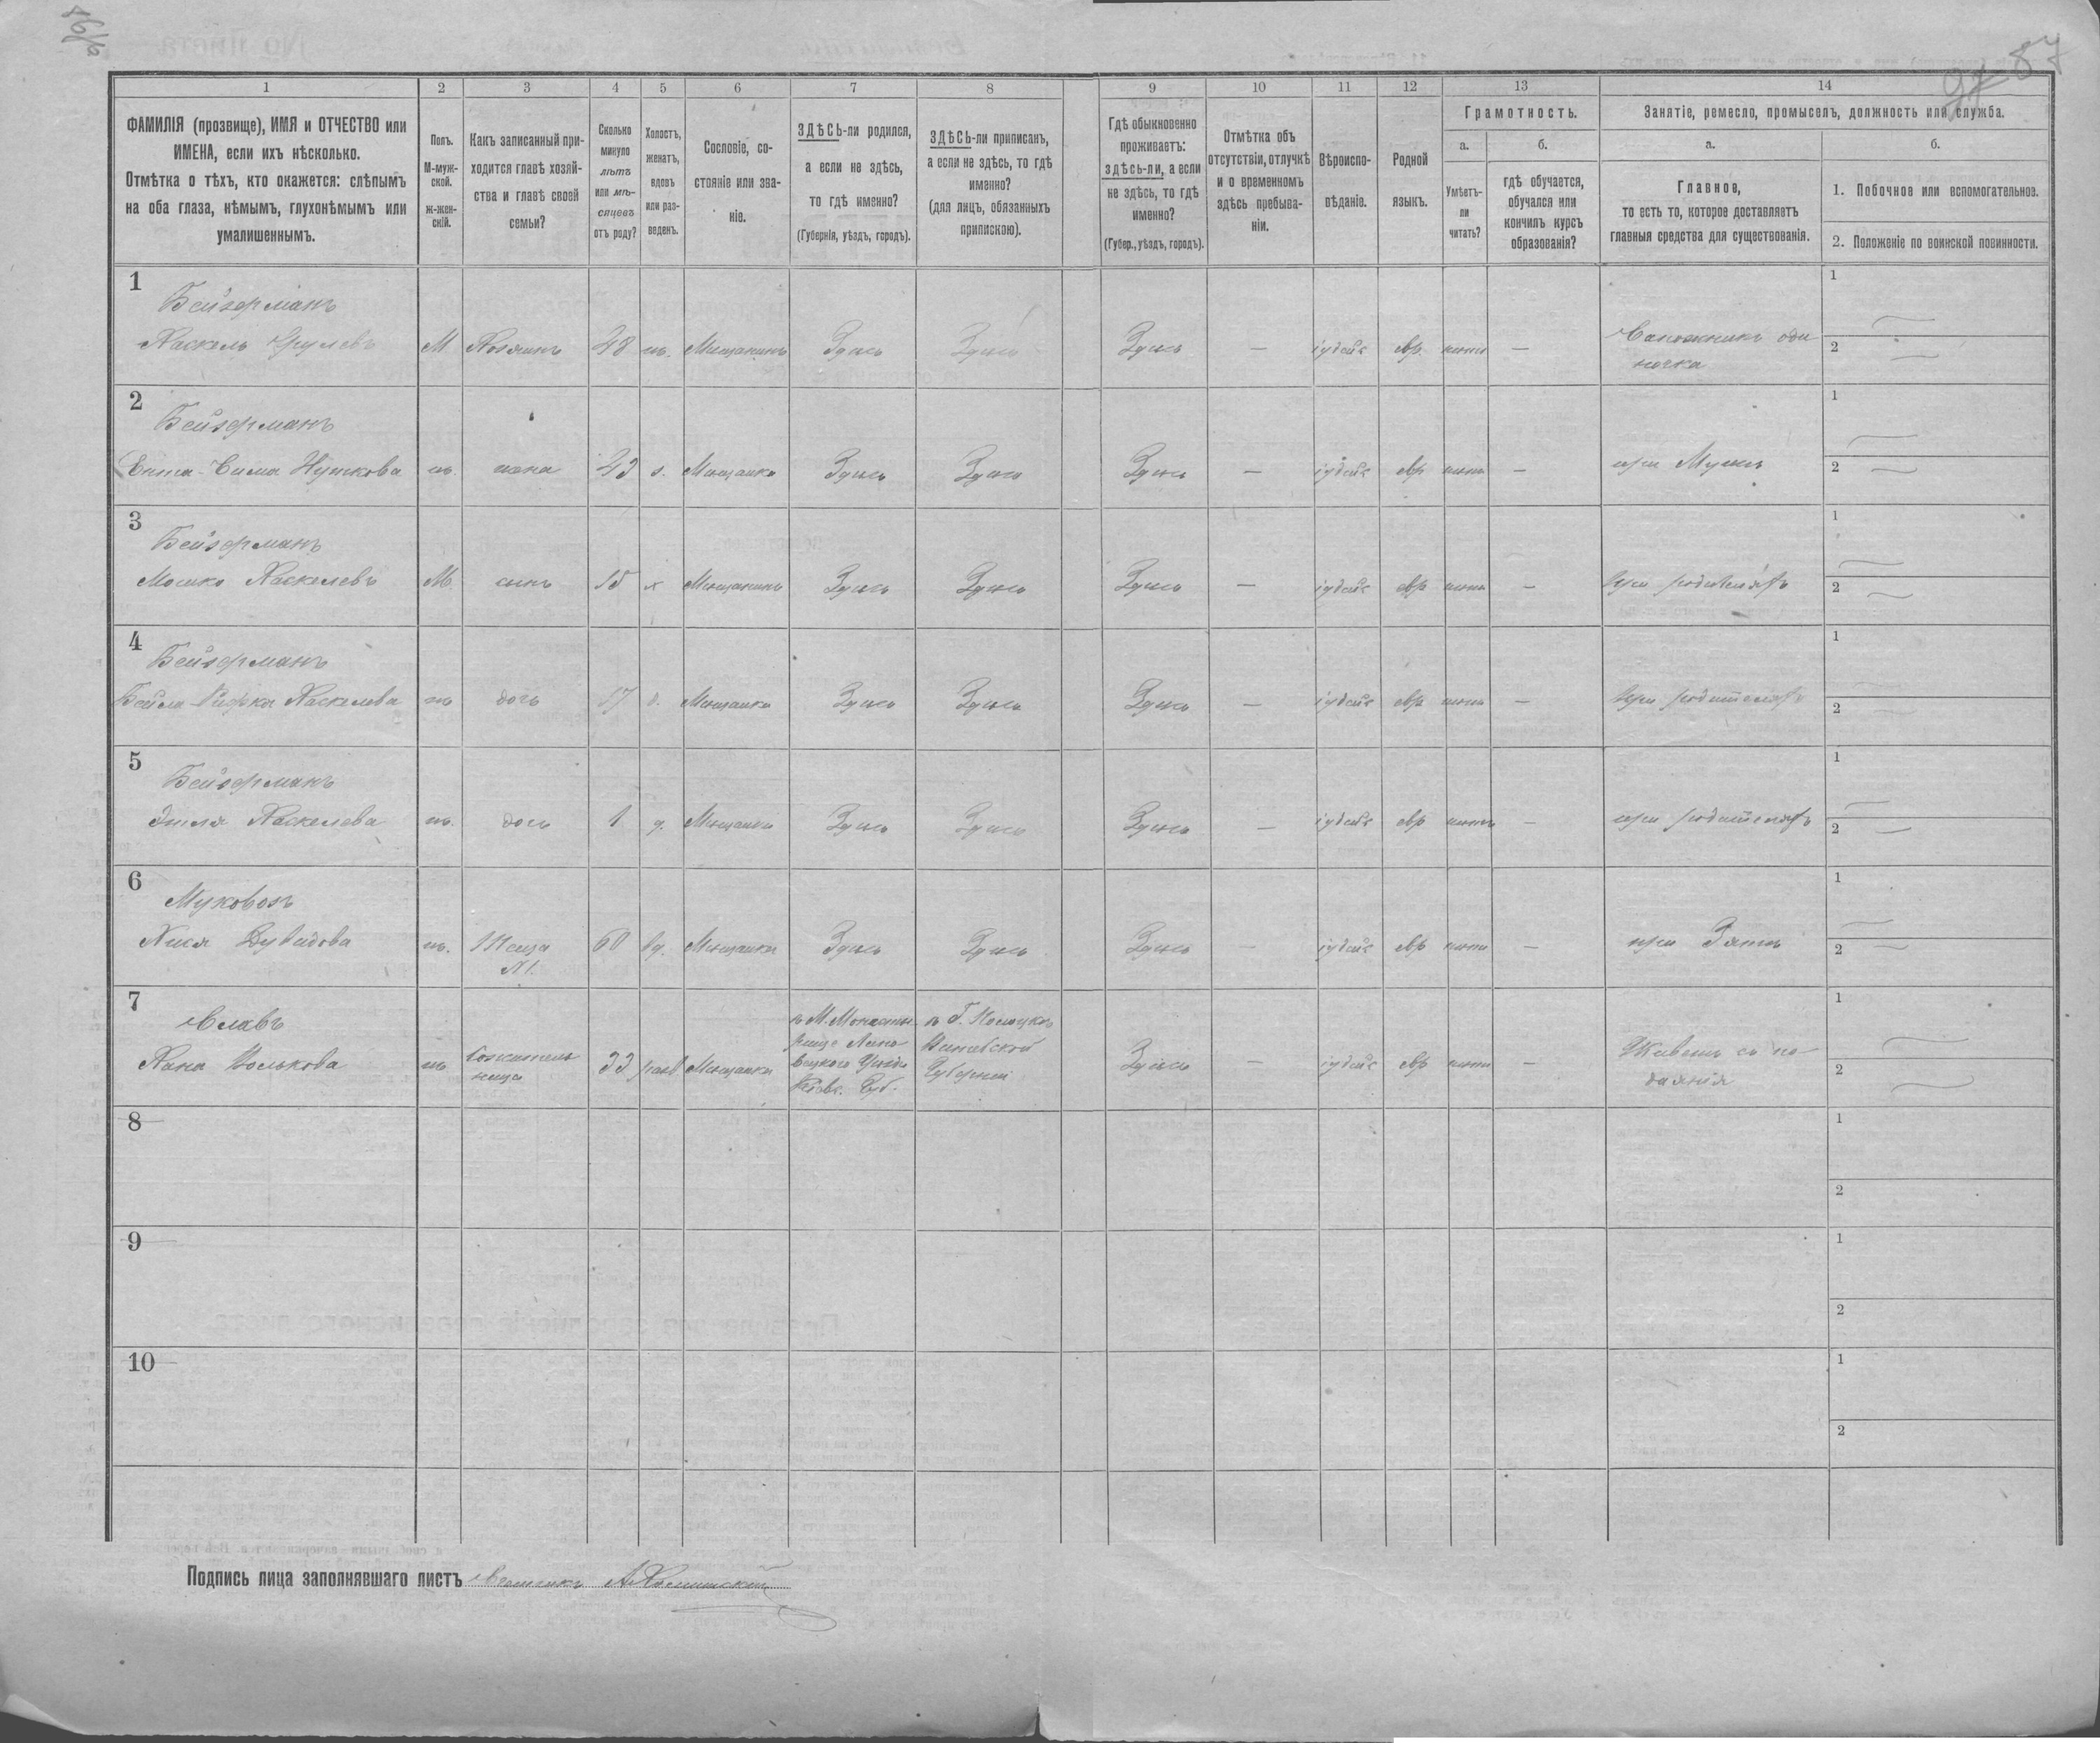 87
1 2 3 4 5 6 7 8 9 10 11 12 13 14
ФАМИЛІЯ (прозвище), ИМЯ и ОТЧЕСТВО или
ИМЕНА, если ихъ нѣсколько.
Отмѣтка о тѣхъ, кто окажется: слѣпымъ
на оба глаза, нѣмымъ, глухонѣмымъ или
умалишеннымъ.
Полъ.
М-муж-
ской.
Ж-жен-
скій.
Какъ записанный при-
ходится главѣ хозяй-
ства и главѣ своей
семьи?
Сколько
минуло
лѣтъ
или мѣ-
сяцевъ
отъ роду?
Холостъ,
женатъ,
вдовъ
или раз-
веденъ.
Сословіе, со-
стояніе или зва-
ніе.
ЗДѢСЬ-ли родился,
а если не здѣсь,
то гдѣ именно?
(Губернія, уѣздъ, городъ).
ЗДѢСЬ-ли приписанъ,
а если не здѣсь, то гдѣ
именно?
(для лицъ, обязанныхъ
припискою).
Гдѣ обыкновенно
проживаетъ:
здѣсь-ли, а если
не здѣсь, то гдѣ
именно?
(Губер., уѣздъ, городъ).
Отмѣтка объ
отсутствіи, отлучкѣ
и о временномъ
здѣсь пребыва-
ніи.
Вѣроиспо-
вѣданіе.
Родной
языкъ.
Грамотность.
а.
Умѣетъ-
ли
читать?
б.
гдѣ обучается,
обучался или
кончилъ курсъ
образованія?
Занятіе, ремесло, промыселъ, должность или служба.
а.
Главное,
то есть то, которое доставляетъ
главныя средства для существованія.
б.
1. Побочное или вспомогательное.
2. Положеніе по воинской повинности.
1
Бейзерманъ
Хаскель Срулевъ М Хозяинъ 48 ж. Мѣщанинъ Здѣсь Здѣсь Здѣсь — іудейс евр. —
Сапожникъ оди
ночка
1
2
2
Бейзерманъ
Ента-Сима Нуткова ж. жена 43 з. Мѣщанка Здѣсь Здѣсь Здѣсь — іудейс евр —
при Мужѣ
1
2
3
Бейзерманъ
Мошко Хаскелевъ М. сынъ 15 х Мѣщанинъ Здѣсь Здѣсь Здѣсь — іудейс евр —
при родителяхъ
1
2
4
Бейзерманъ
Бейла-Рифка Хаскелева ж дочь 17 Мѣщанка Здѣсь Здѣсь Здѣсь — іудейс евр —
при родителяхъ
1
2
5
Бейзерманъ
Этля Хаскелева ж. дочь 1 д. Мѣщанка Здѣсь Здѣсь Здѣсь — іудейс евр —
при родителяхъ
1
2
6
Муковозъ
Хися Дувидова ж. Теща 60 вд. Мѣщанка Здѣсь Здѣсь Здѣсь — іудейс евр —
№ 1.
при Зятѣ
1
2
7
Хана Волькова ж Сожитель
ница 33 разв Мѣщанка
въ М. Монасты
рище Липо
вецкого Уѣзда
Кіевс. Губ.
Губерніи
Здѣсь — іудейс евр —
Живетъ съ по
даянія
1
2
8
1
2
9
1
2
10
1
2
Подпись лица заполнявшаго листъ